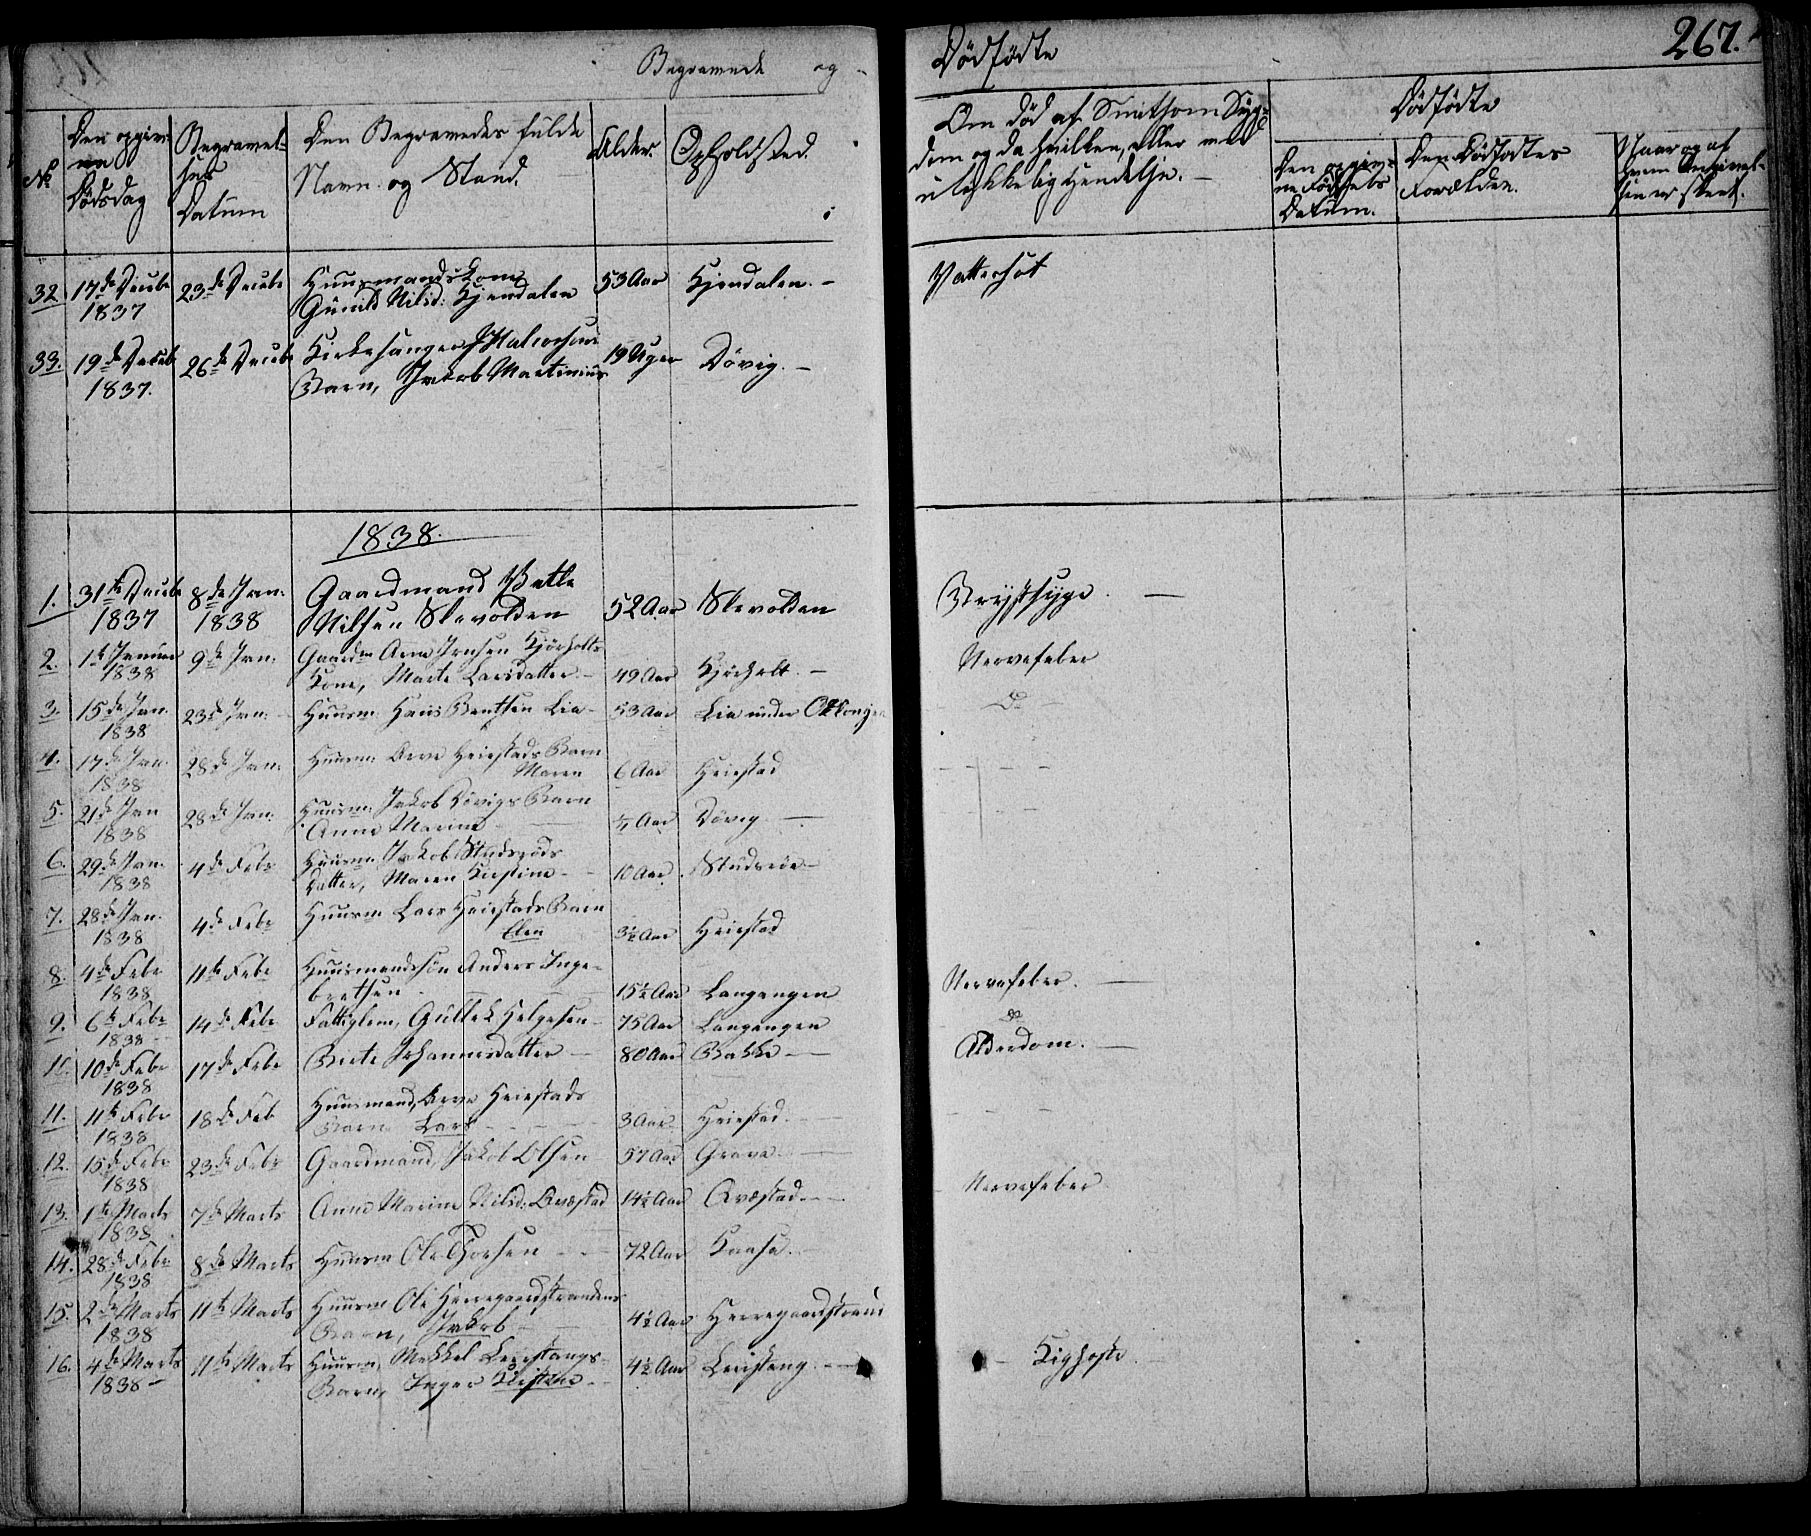 Begravede og
Dødfødte
267.
No
Den opgivne Dødsdag
Begravelses Datum
Den Begravedes fulde Navn og Stand.
Alder.
Opholdsted.
Om død af Smitsom Sygdom og da hvilken, eller ved ulykkelig Hendelse. -
Dødfødte
Den opgivne Fødsels Datum.
Den Dødfødtes Forældre.
Naar og af hvem Anmeldelsen er skeet.
32. 17de Decbr 1837 23de Decbr Huusmandskone Gunild Nilsd: Kjendalen 53 Aar Kjendalen. - Vattersot
33. 19de Decbr 1837. 26de Decbr Kirkesanger Halvorsens Barn, Jakob Martinius 19 Uger Døvig. -
1838.
1. 31te Decbr 1837 8de Jan: 1838 Gaardmand Nilsen Skovolden 52 Aar Skovolden Brystsyge. -
2. 1te Januar 1838 9de Jan: Gaardm Arne Jensen Kjørholts Kone, Marte Larsdatter - 49 Aar Kjørholt. - Nervefeber
3. 15de Jan. 1838 23de Jan: - Huusm. Hans Bentsen Lia - 53 Aar Lia under Do
4. 17de Jan. 1838 28de Jan: Huusm. Arve Heiestads Barn Maren 6 Aar Heiestad - - -
5. 21de Jan 1838 28de Jan: Huusm. Jakob Døvigs Barn Anne Marine Aar Døvig -
6. 29de Jan. 1838 4de Febr Huusm. Jakob Studsrøds Datter, Maren Kirstine - 10 Aar Studsrøe -
7. 28de Jan. 1838 4de Febr Huusm Lars Heiestads Barn Elen 3½ Aar Heiestad
8. 4de Febr 1838 11te Febr Huusmandssøn Anders Ingebretsen 15½ Aar Langangen Nervefeber. -
9. 6te Febr 1838 - 14de Febr Fattiglem, Gullek Helgesen - 75 Aar Langangen Do
10. 10de Febr 1838 17de Febr Berte Johannesdatter - 80 Aar Bakke - Alderdom. -
11. 11te Febr 1838 18de Feb Huusmand, Arve Heiestads Barn Lars - - - 3 Aar Heiestad. - - -
12. 15de Febr 1838 23de Febr Gaardmand, Jakob Olsen 57 Aar Grava -
13. 1te Marts 1838. 7de Marts Anne Marine Nilsd: Aveestad 14½ Aar Aveestad - - Nervefeber
14. 28de Febr 1838 8de Marts Huusm Ole Thorsen - - 72 Aar Kaasa.
15. 2de Marts 1838 11te Marts Huusm Ole Herregaardstrandens Barn, Jakob - 4½ Aar Herregaardstrand
16. 4de Marts 1838 - 11te Marts Huusm, Mekkel Leerstangs Barn, Inger Kirstine - - 4½ Aar Leerstang. - - Kighoste